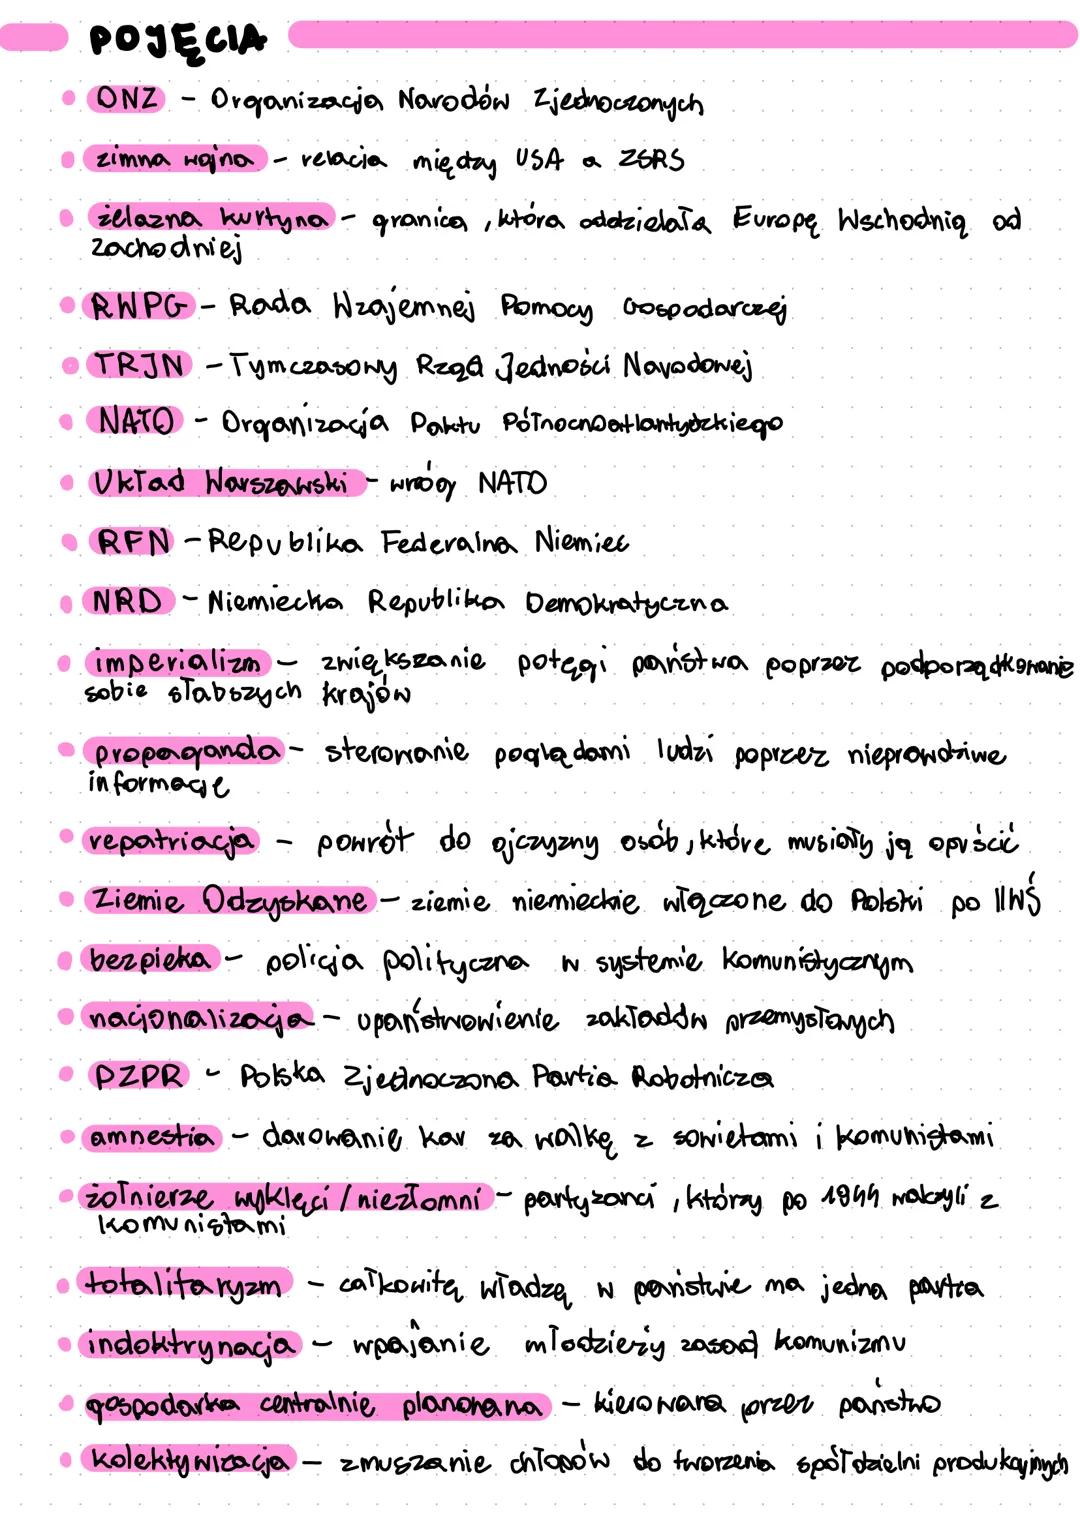 POJĘCIA
ONZ - Organizacja Narodów Zjednoczonych
zimna wojna - relacja między USA a ZSRS
żelazna kurtyna - granica, która oddzielała Europę Wschodnią od
zachodniej
RWPG - Rada Wzajemnej Pomocy Gospodarczej
TRJN - Tymczasowy Rząd Jedności Narodowej
NATO - Organizacja Paktu Północnoatlantyckiego
Układ Warszawski - wrogy NATO
RFN - Republika Federalna Niemiec
NRD - Niemiecka Republika Demokratyczna
imperializm - zwiększanie potęgi państwa poprzez podporządkowanie
sobie słabszych krajów
propaganda - sterowanie poglądami ludzi poprzez nieprawdziwe
informacje
repatriacja - powrót do ojczyzny osób, które musiały ją opuścić
Ziemie Odzyskane - ziemie niemieckie włączone do Polski po IIWŚ
bezpieka - policja polityczna w systemie komunistycznym
nacjonalizacja - upaństwowienie zakładów przemysłowych
PZPR - Polska Zjednoczona Partia Robotnicza
amnestia - darowanie kar za walkę z sowietami i komunistami
żołnierze wyklęci / niezłomni - partyzanci, którzy po 1944 walczyli z
komunistami
totalitaryzm - całkowitą władzę w państwie ma jedna partia
indoktrynacja - wpajanie młodzieży zasad komunizmu
gospodarka centralnie planowana - kierowana przez państwo
kolektywizacja - zmuszanie chłopów do tworzenia spółdzielni produkcyjnych